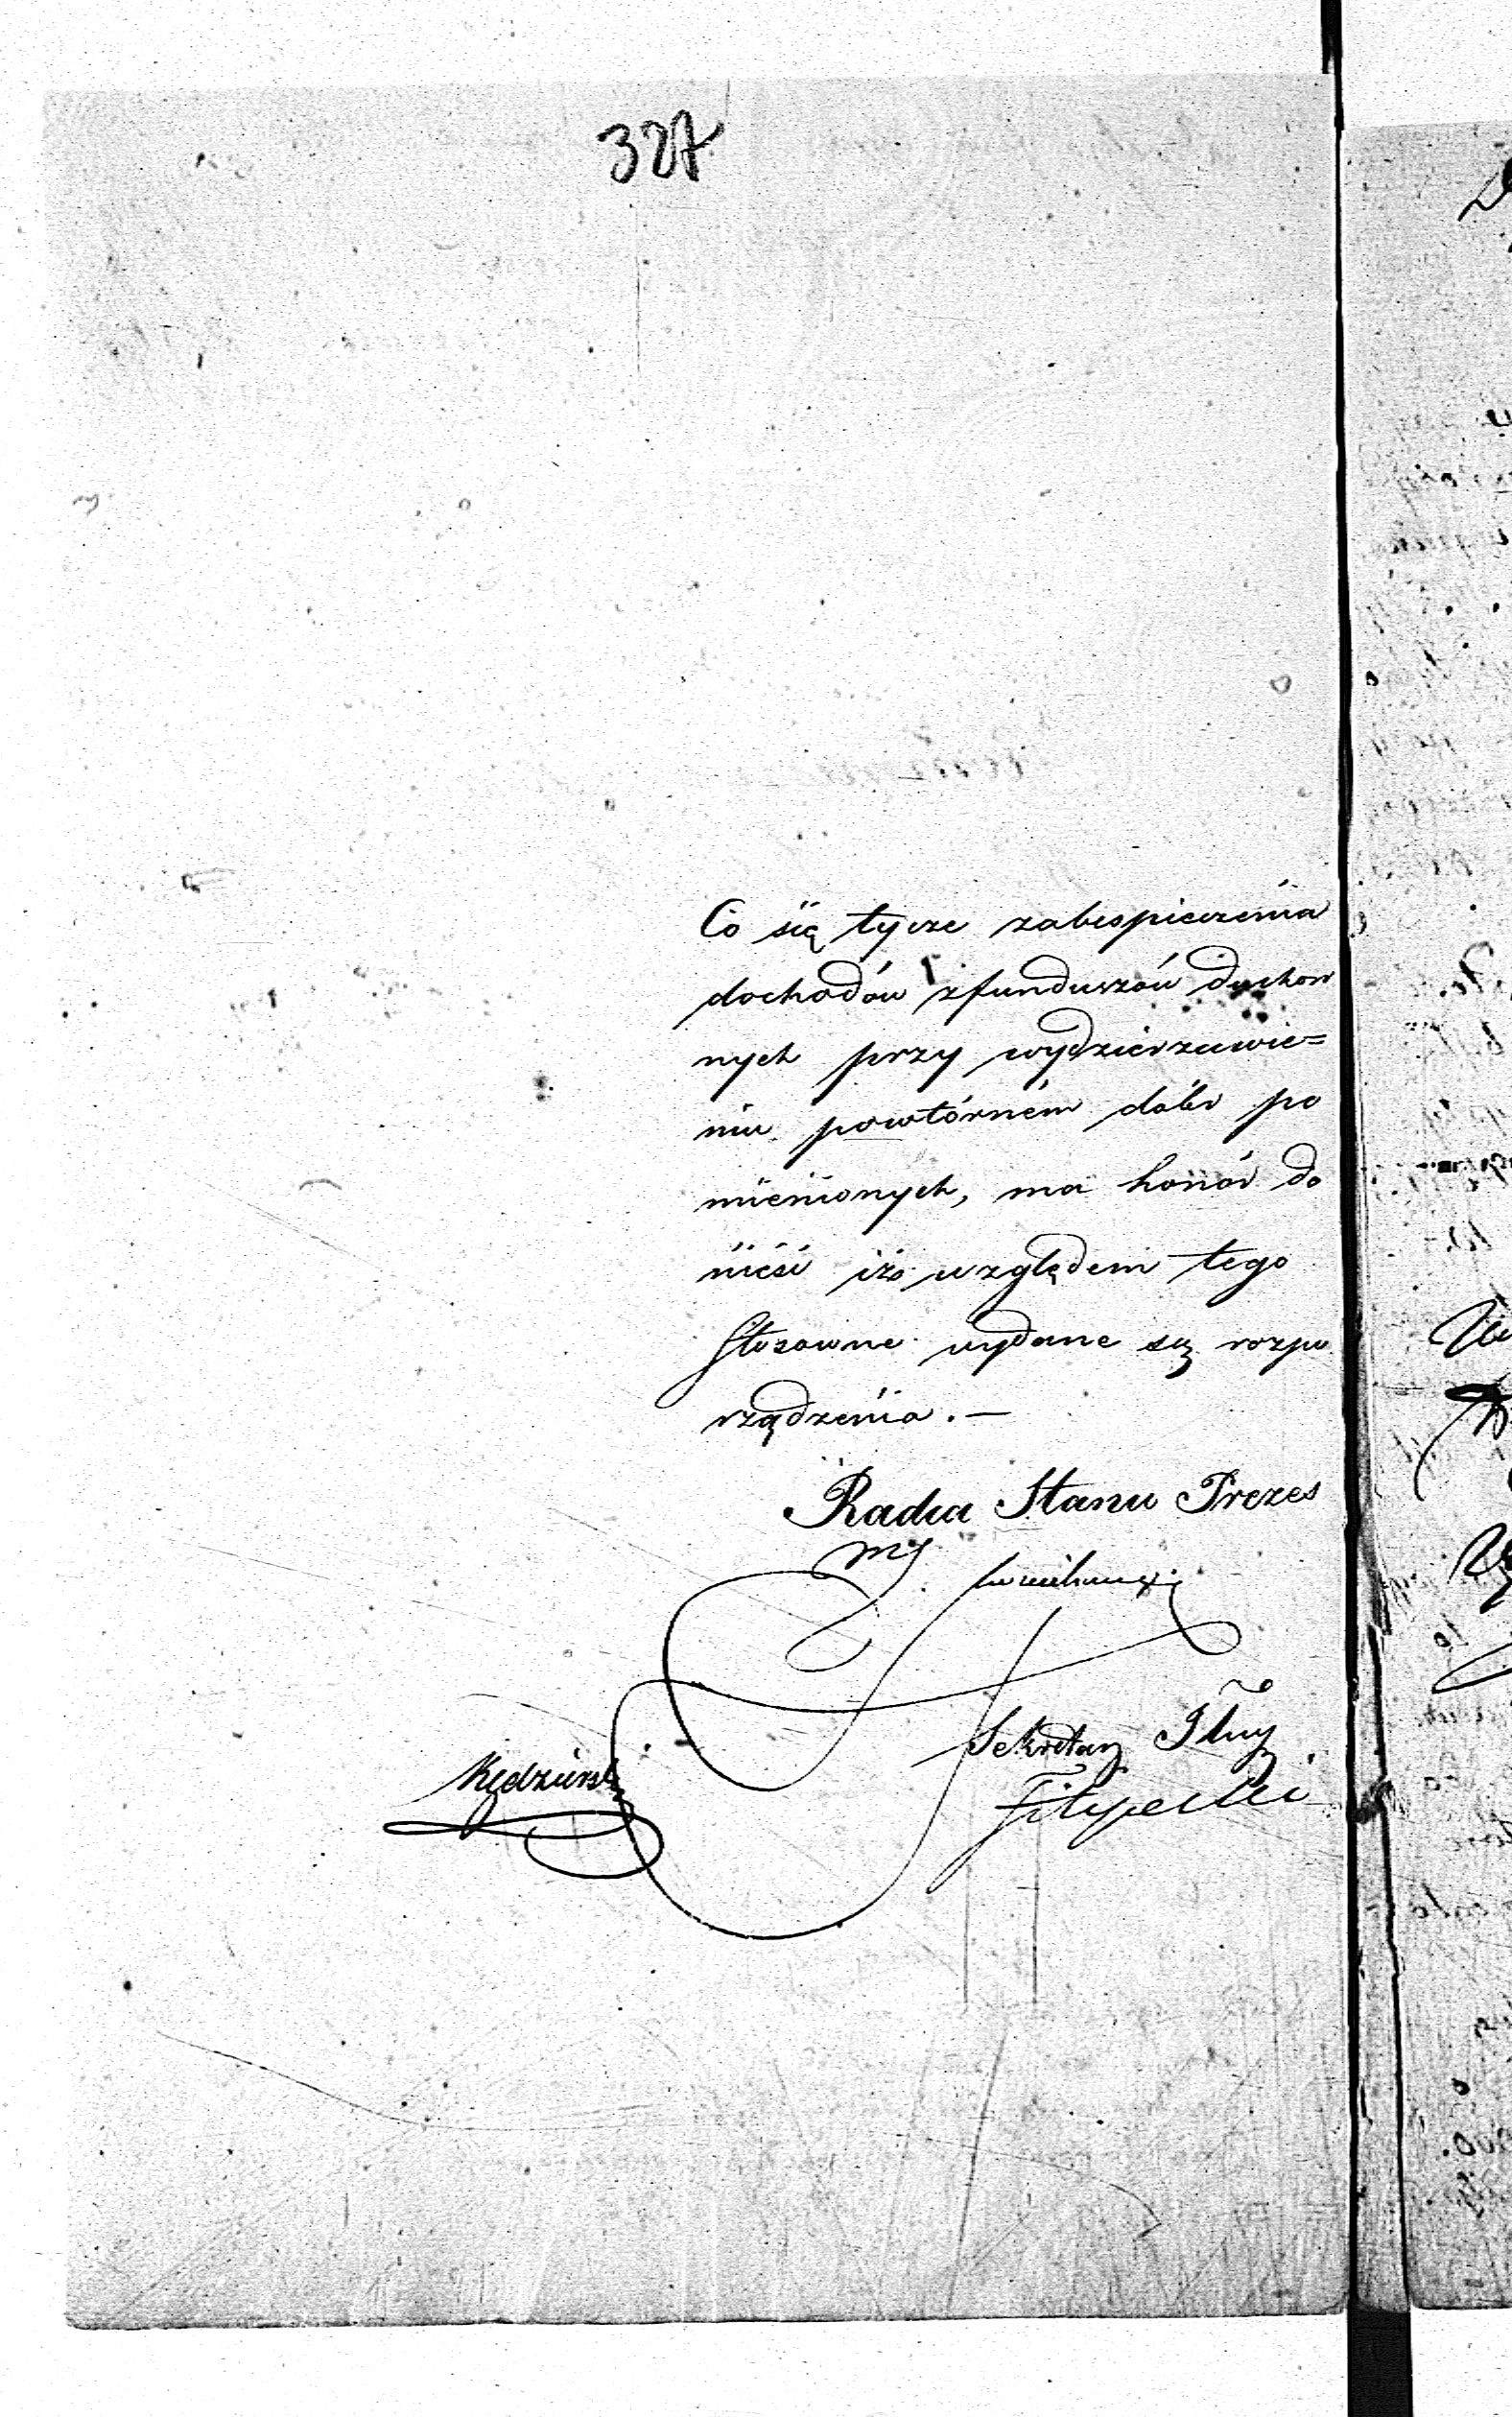 327
Co się tycze zabespieczenia
dochodów z funduszów duchow
nych przy wydzierzawie=
niu powtórném dóbr po
mienionych, ma honór do
nieść iż względem tego
stosowne wydane są rozpo
rządzenia. —
Radca Stanu Prezes
Sekretarz Jlny
Filipecki
Kędzierski